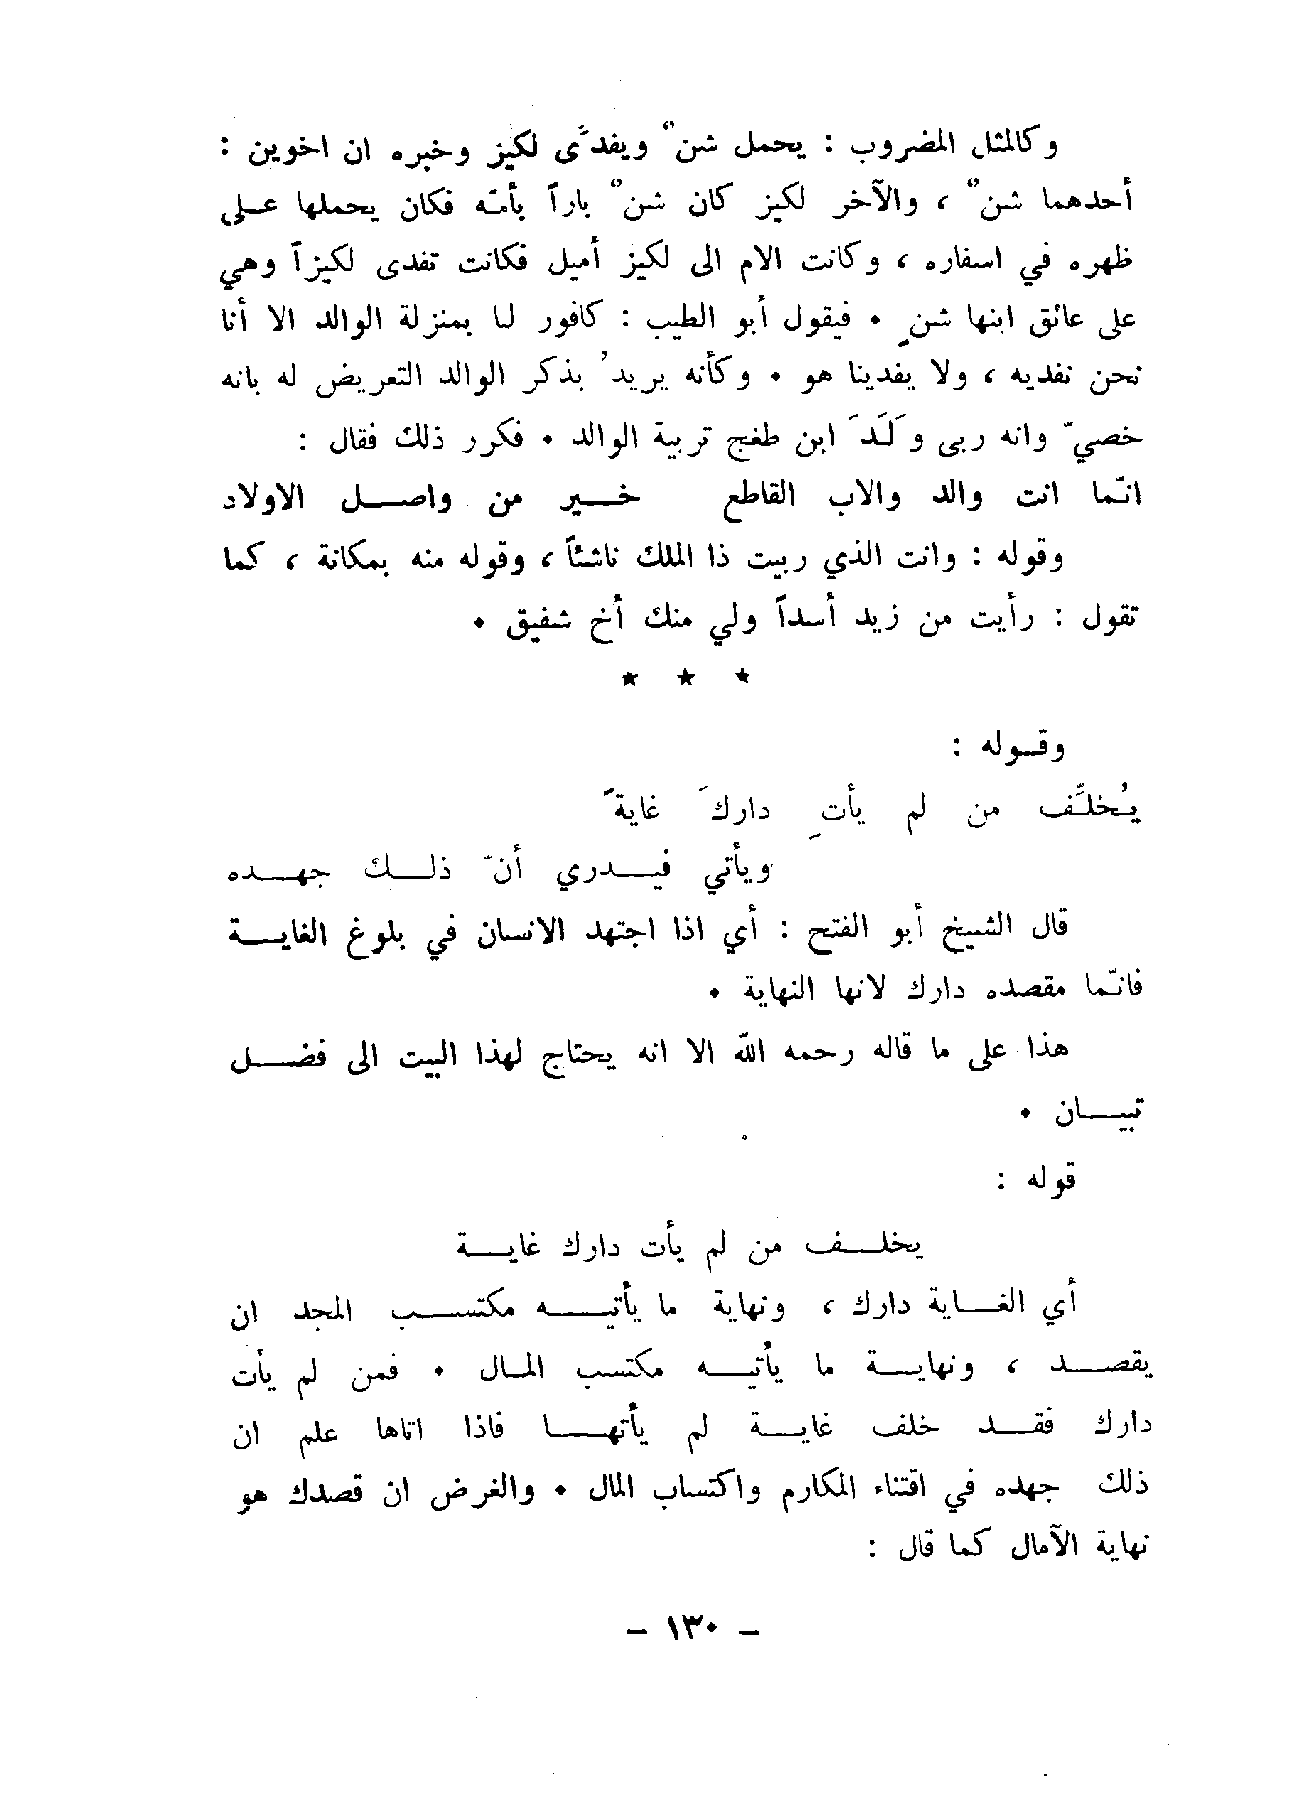 وكالمثل المضروب : يحمل شنٌ ويفدَّى لكيز وخبره ان اخوين :
أحدهما شنٌ ، والآخر لكيز كان شنٌ باراً بأمّه فكان يحملها على
ظهره في اسفاره ، وكانت الام الى لكيز أميل فكانت تفدى لكيزاً وهي
على عاتق ابنها شنٍ . فيقول أبو الطيب : كافور لنا بمنزلة الوالد الا أنا
نحن نفديه ، ولا يفدينا هو . وكأنه يريدُ بذكر الوالد التعريض له بانه
خصيّ وانه ربى وَلَدَ ابن طغج تربية الوالد . فكرر ذلك فقال :
انّما انت والد والاب القاطع خير من واصل الاولاد
وقوله : وانت الذي ربيت ذا الملك ناشئاً ، وقوله منه بمكانة ، كما
تقول : رأيت من زيد أسداً ولي منك أخ شفيق .
★ ★ ★
وقوله :
يُخلِّف من لم يأتِ داركَ غايةً
ويأتي فيدري أنّ ذلك جهده
قال الشيخ أبو الفتح : أي اذا اجتهد الانسان في بلوغ الغاية
فانّما مقصده دارك لانها النهاية .
هذا على ما قاله رحمه الله الا انه يحتاج لهذا البيت الى فضل
تبيان .
قوله :
يخلف من لم يأت دارك غاية
أي الغاية دارك ، ونهاية ما يأتيه مكتسب المجد ان
يقصد ، ونهاية ما يأتيه مكتسب المال . فمن لم يأت
دارك فقد خلف غاية لم يأتها فاذا اتاها علم ان
ذلك جهده في اقتناء المكارم واكتساب المال . والغرض ان قصدك هو
نهاية الآمال كما قال :
– ١٣٠ –